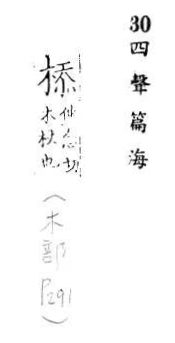 30 四聲篇海
㮇 他念切
木杖也
(木部 P291)